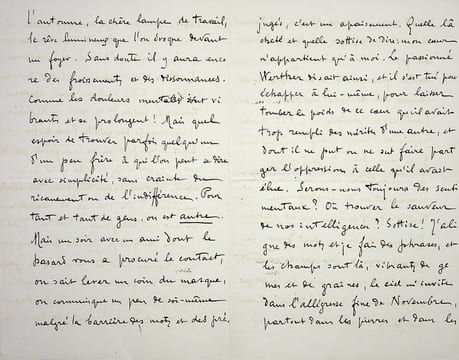 l'automne, la chère lampe de travail,
le rêve lumineux que l'on évoque devant
un foyer. Sans doute il y aura enco
re des froissements et des dissonances.
Comme les douleurs mentales sont vi
brantes et se prolongent ! Mais quel
espoir de trouver parfois quelqu'un
d'un peu frère à qui l'on peut se dire
avec simplicité, sans crainte du
ricanement ou de l'indifférence. Pour
tant et tant de gens, on est autre.
Mais un soir avec un ami dont le
hasard vous a procuré le contact,
on sait lever un coin du masque,
on communique un peu de soi-même
malgré la barrière des mots et des pré
jugés, c'est un apaisement. Quelle lâ
cheté et quelle sottise de dire : mon cœur
n'appartient qu'à moi. Le passionné
Werther disait ainsi, et il s'est tué pour
échapper à lui-même, pour laisser
tomber le poids de ce cœur qu'il avait
trop rempli des mérites d'une autre, et
dont il ne put ou ne sut faire part
ger l'oppression à celle qu'il avait
élue. Serons-nous toujours des senti
mentaux ? Où trouver le sauveur
de nos intelligences ? Sottise ! J'ali
gne des mots et je fais des phrases, et
les champs sont là, vibrants de ge
mes et de graines, le ciel m'invite
dans l'allégresse fine de Novembre,
partout dans les pierres et dans les